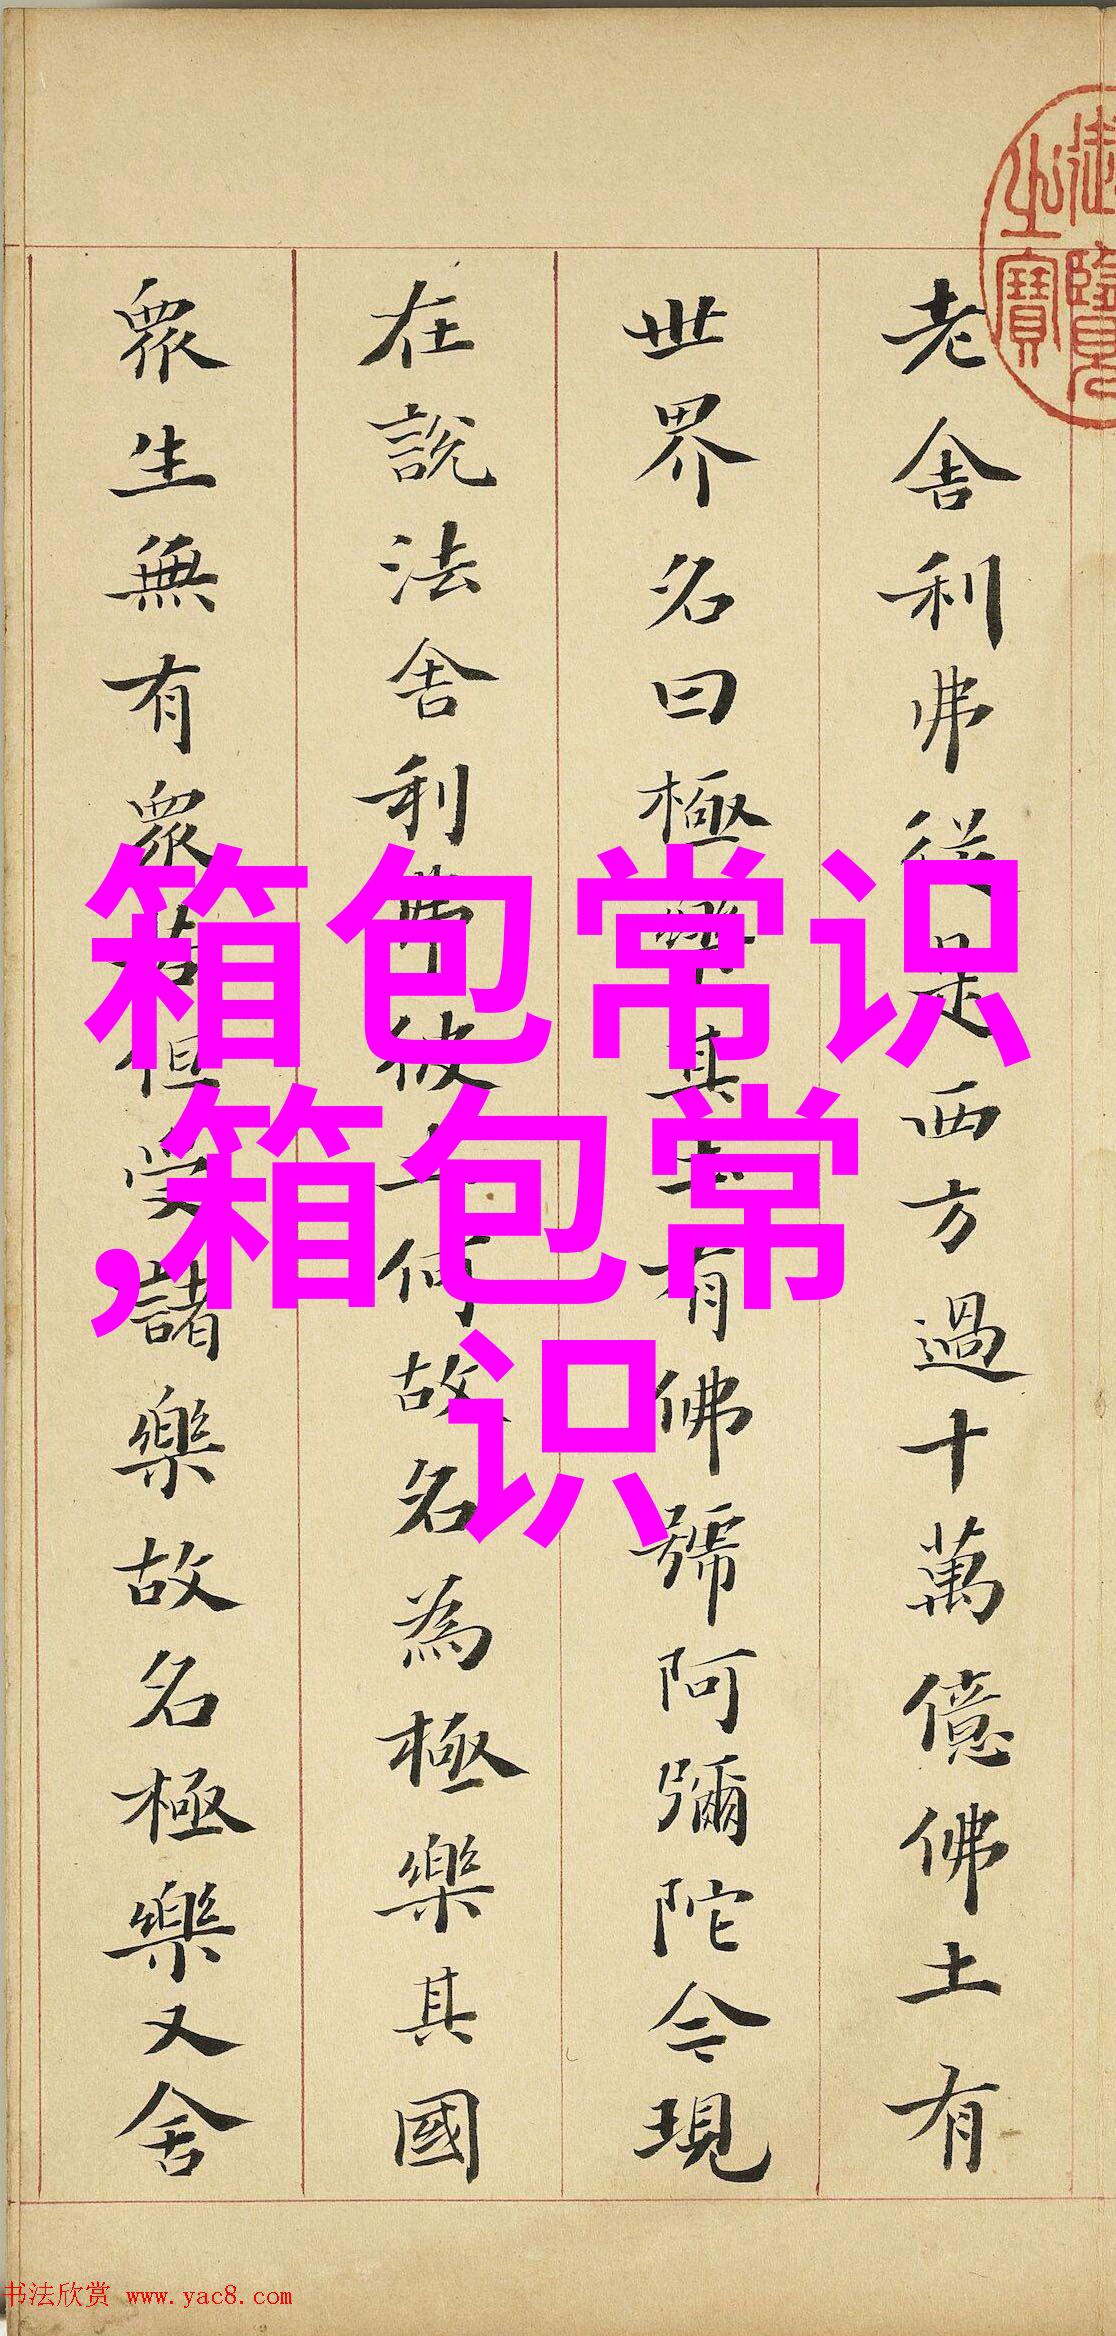 御覽之寶
老舍利弗從是西方過十萬億佛土有
世界名曰極樂其土有佛號阿彌陀今現
在說法舍利弗彼土何故名為極樂其國
眾生無有眾苦但受諸樂故名極樂又舍
箱包常识
,箱包常
识
书法欣赏 www.yac8.com